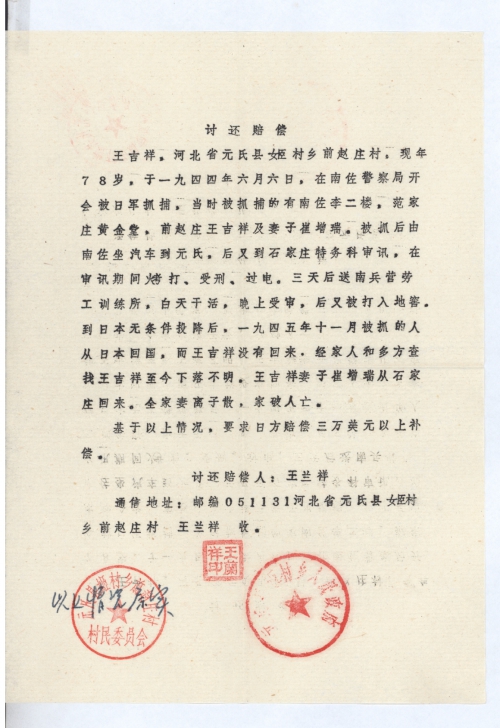 讨还赔偿
王吉祥。河北省元氏县姬村乡前赵庄村，现年
78岁，于一九四四年六月六日，在南佐警察局开
会被日军抓捕，当时被抓捕的有南佐李二楼，范家
庄黄金堂，前赵庄王吉祥及妻子崔增瑞。被抓后由
南佐坐汽车到元氏，后又到石家庄特务科审讯，在
审讯期间火考打、受刑、过电。三天后送南兵营劳
工训练所，白天干活，晚上受审，后又被打入地窖。
到日本无条件投降后，一九四五年十一月被抓的人
从日本回国，而王吉祥没有回来。经家人和多方查
找王吉祥至今下落不明。王吉祥妻子崔增瑞从石家
庄回来。全家妻离子散，家破人亡。
基于以上情况，要求日方赔偿三万美元以上补
偿。
讨还赔偿人：王兰祥
通信地址：邮编051131河北省元氏县姬村
乡前赵庄村 王兰祥 收。
王蘭祥印
村乡人民政府
村民委员会
以上情况属实